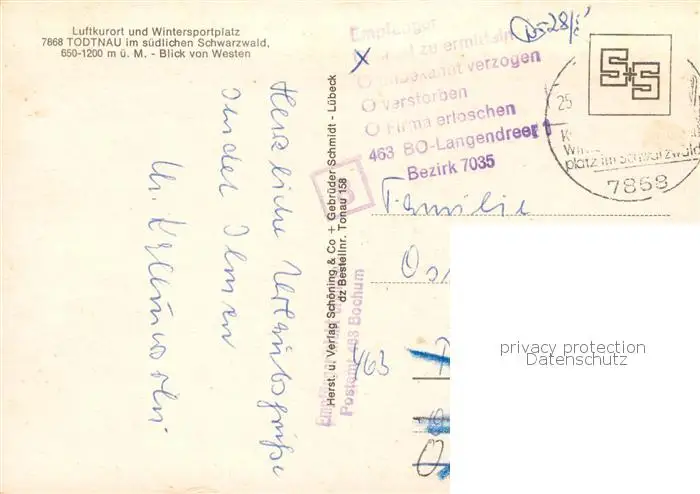 Luftkurort und Wintersportplatz
7868 TODTNAU im südlichen Schwarzwald,
650-1200 m ü. M. - Blick von Westen
Herzliche Urlaubsgrüße
sendet Ihnen
Herst. u. Verlag Schöning & Co + Gebrüder Schmidt - Lübeck
dz Bestellnr. Tonau 158
Empfänger
zu ermitteln
unbekannt verzogen
verstorben
Firma erloschen
463 BO-Langendreer 1
Bezirk 7035
Empfänger
Postamt 463 Bochum
25
platz im Schwarzwald
7868
Familie
463
privacy protection
Datenschutz